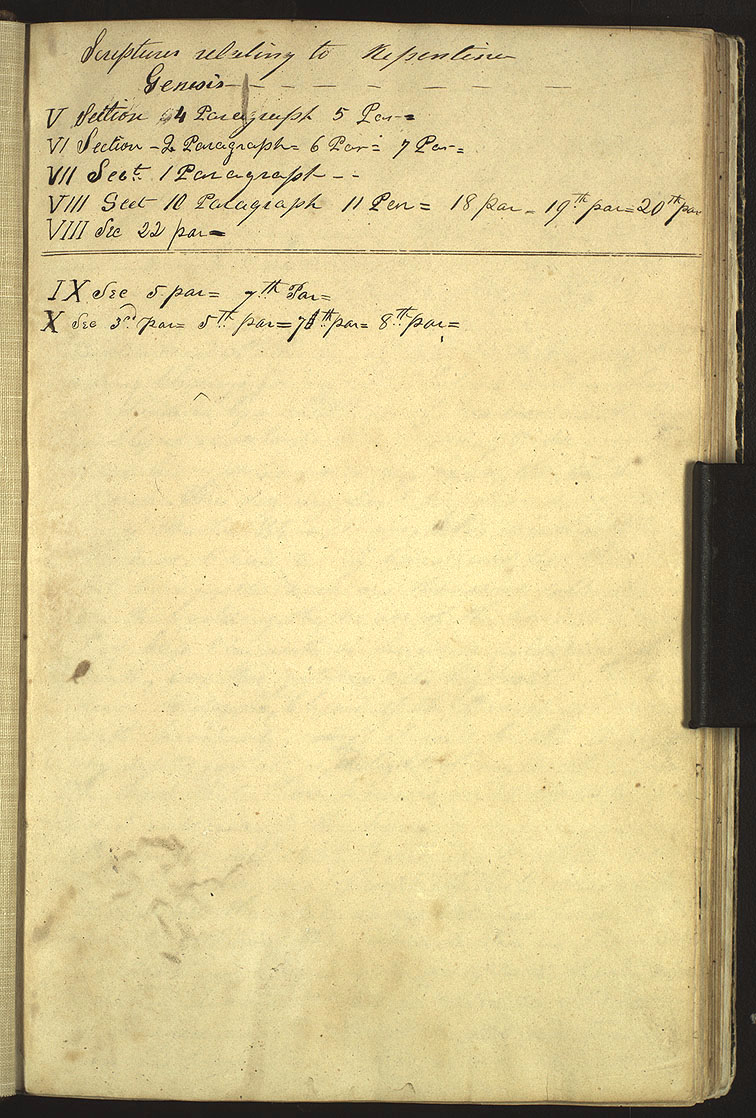 Scriptures relating to Repentince
Genesis — — — — — — —
V Section 4 Paragraph 5 Par=
VI Section - 2 Paragraph= 6 Par= 7 Par-=
VII Sect. 1 Paragraph - -
VIII Sect 10 Paragraph 11 Par= 18 par = 19th par= 20th par
VIII Sec 22 par=
IX Sec 5 par= 7th Par=
X Sec 3rd par= 5th par= 7th par= 8th par=